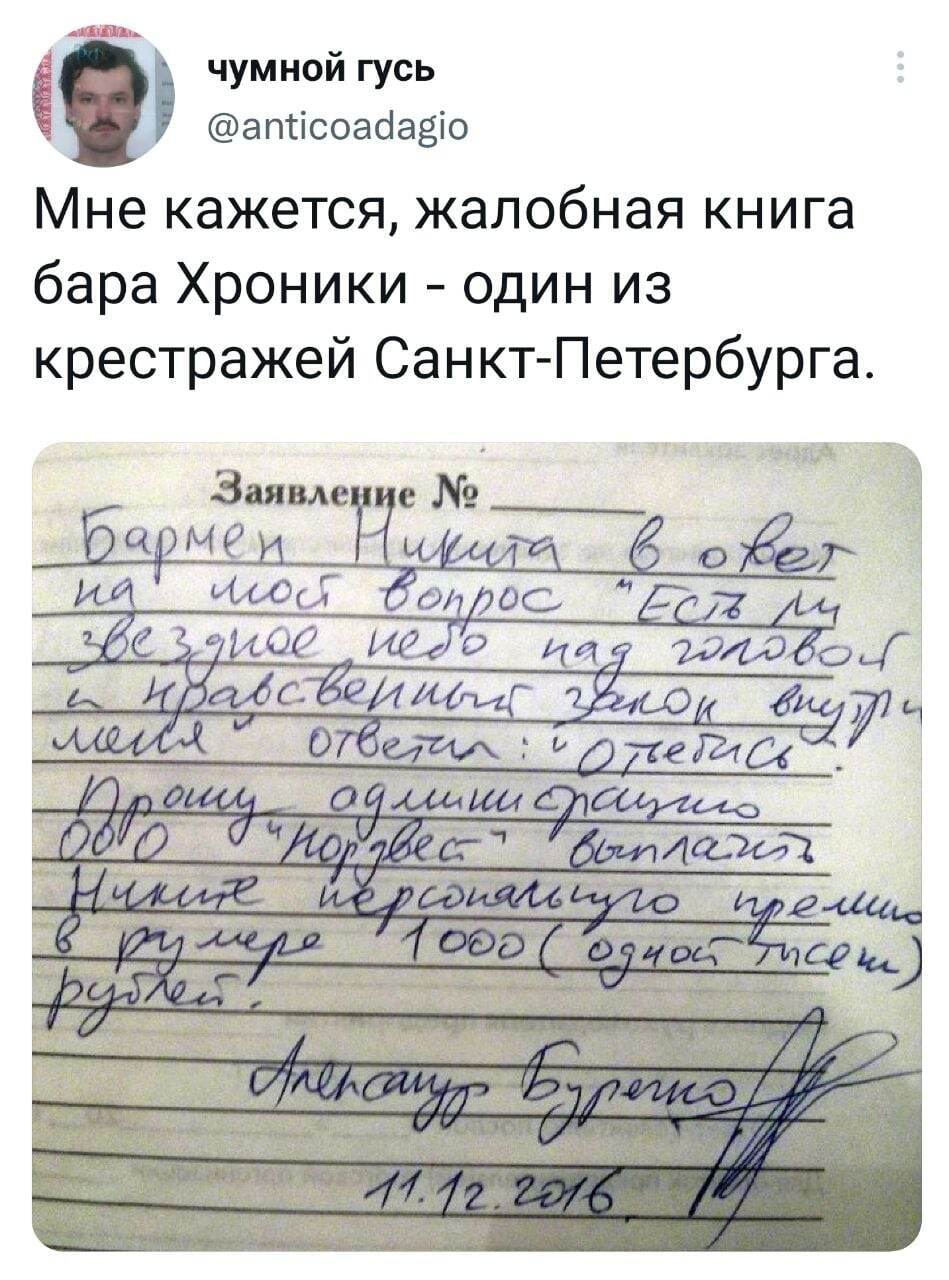 чумной гусь
@anticoadagio
Мне кажется, жалобная книга
бара Хроники - один из
крестражей Санкт-Петербурга.
Заявление №
Бармен Никита в ответ
на мой вопрос "Есть ли
звездное небо над головой
и нравственный закон внутри
меня" ответил: "Отъебись".
Прошу администрацию
ООО "Нордвест" выплатить
Никите персональную премию
в размере 1000 (одной тысячи)
рублей.
Александр
11.12.2016